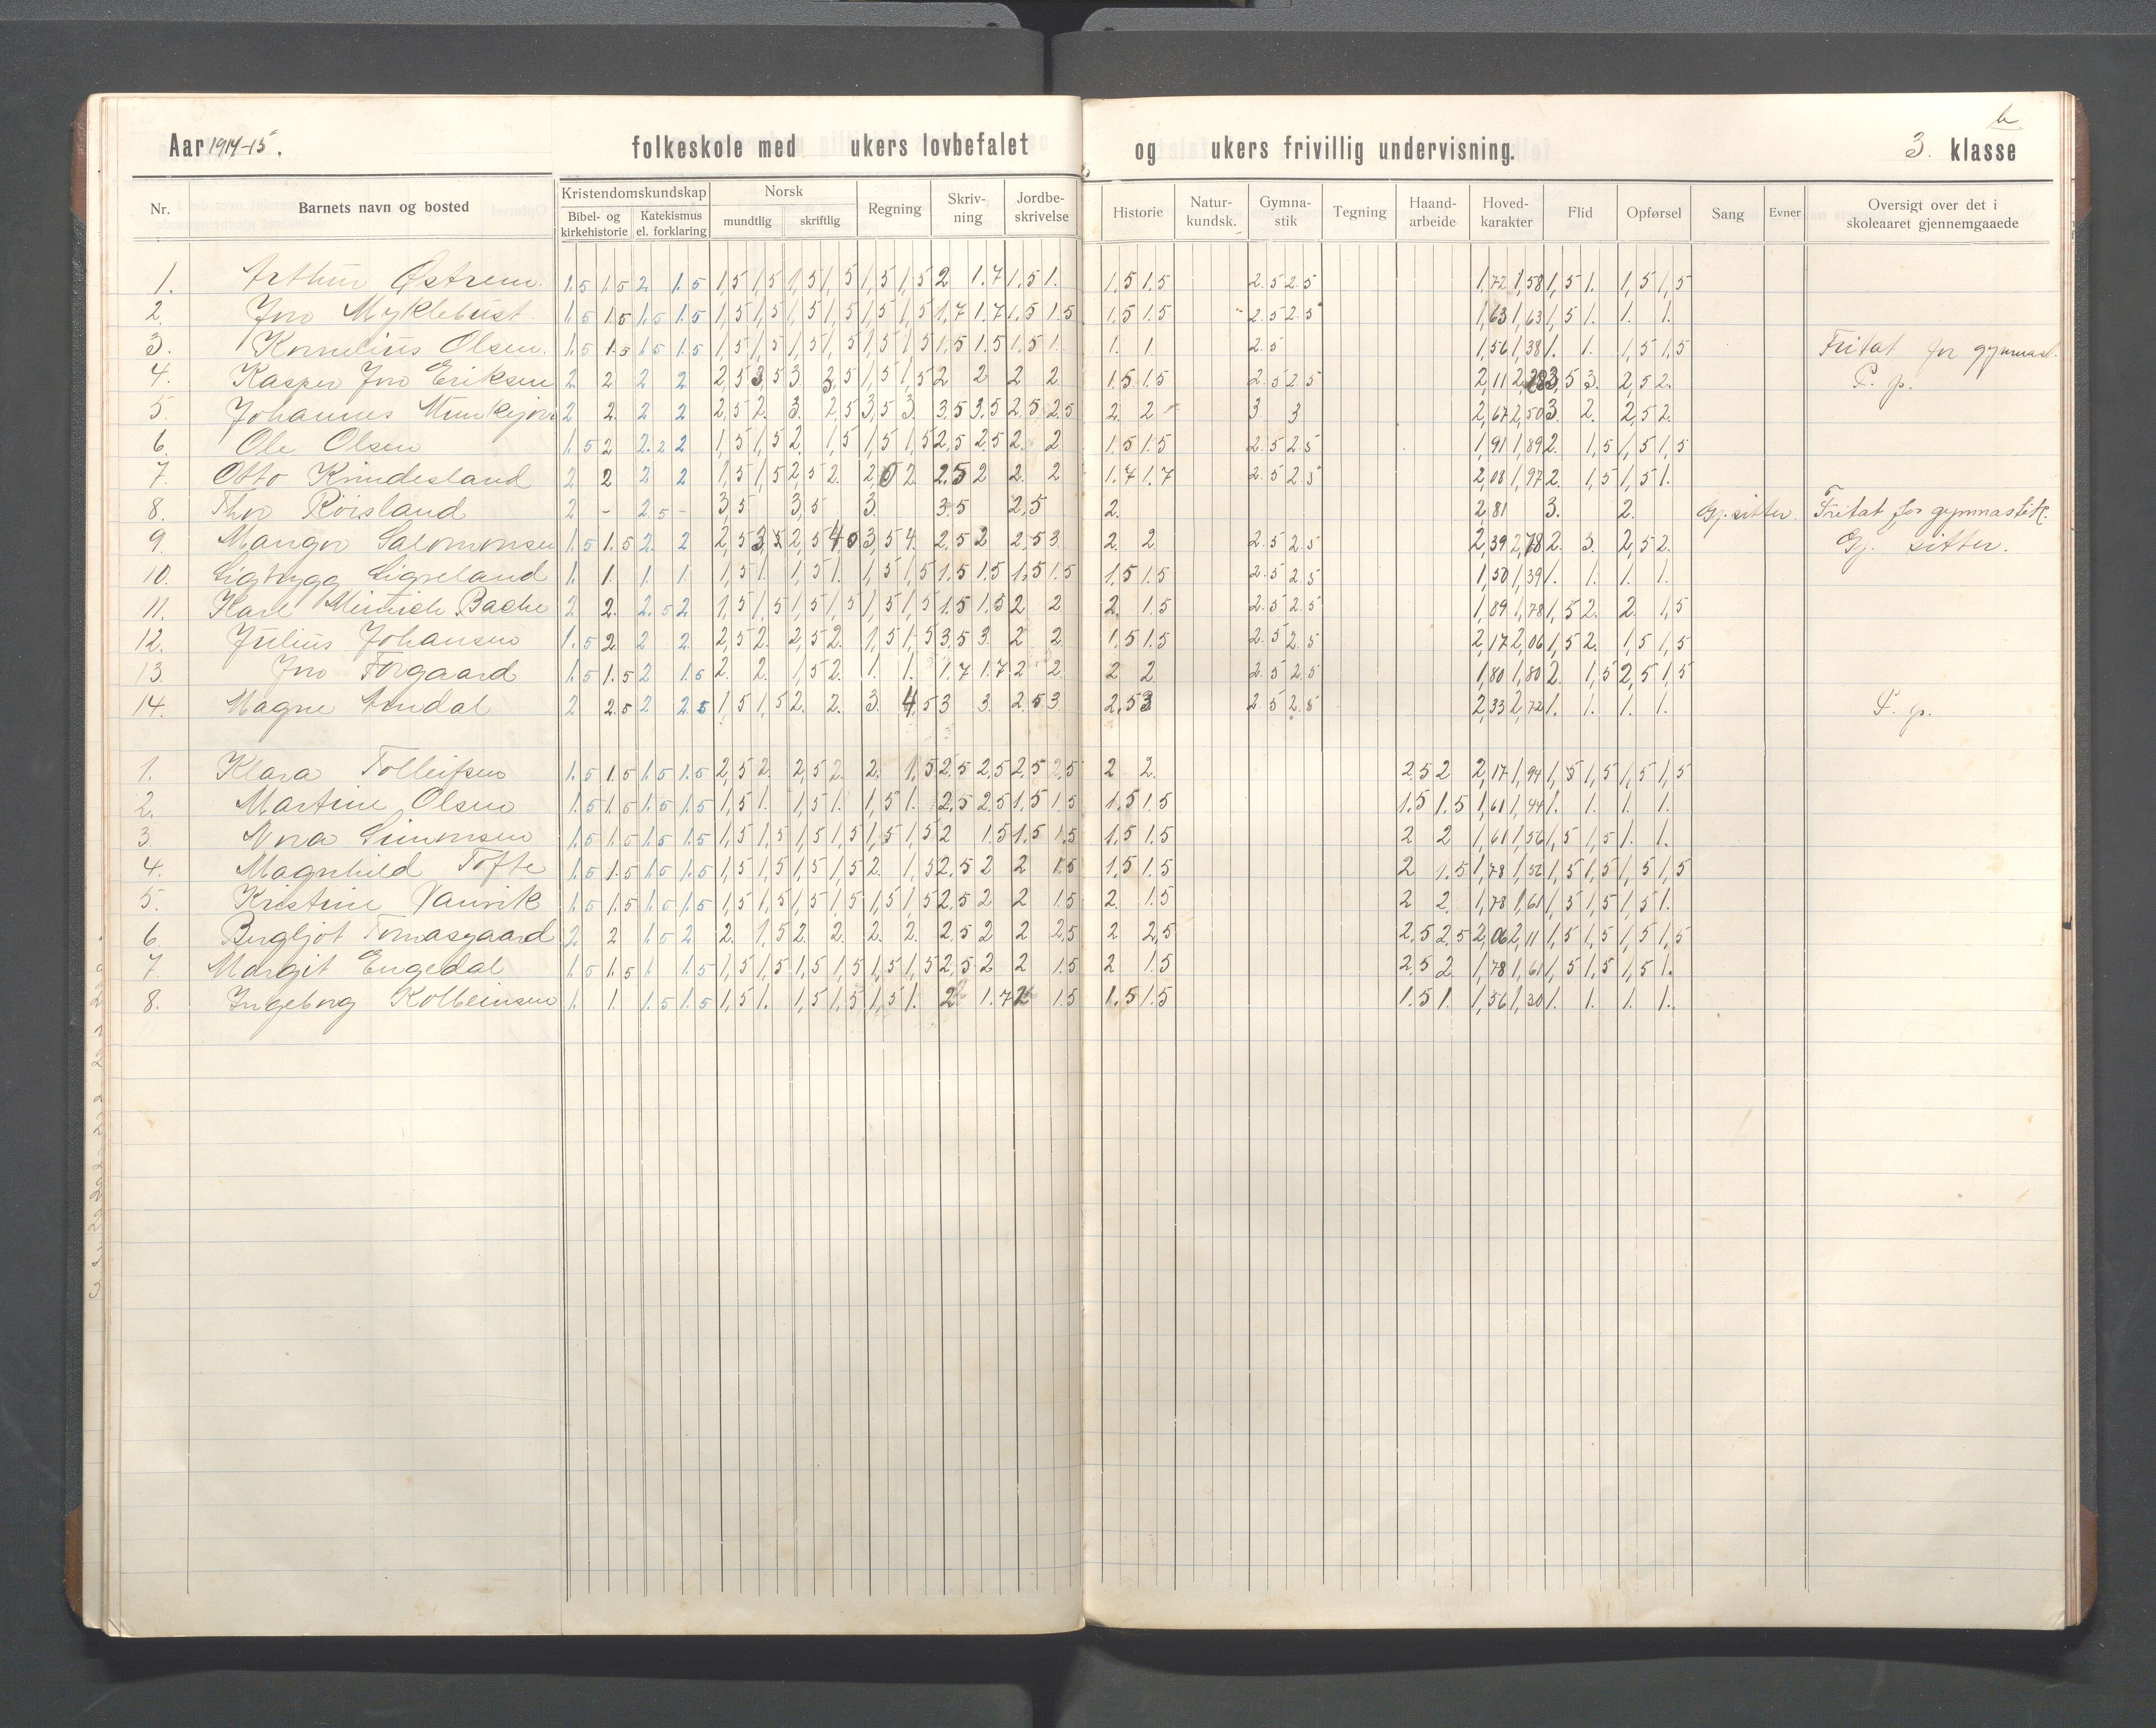 Aar 1914-15. folkeskole med ukers lovbefalet og ukers frivillig undervisning. 3. b klasse
Nr. Barnets navn og bosted Kristendomskundskap Norsk Regning Skriv-ning Jordbe-skrivelse Historie Natur-kundsk. Gymna-stik Tegning Haand-arbeide Hoved-karakter Flid Opførsel Sang Evner Oversigt over det i skoleaaret gjennemgaaede
Bibel- og kirkehistorie Katekismus el. forklaring mundtlig skriftlig
1. Arthur Østrem. 1.5 1.5 2 1.5 1,5 1,5 1,5 1,5 1,5 1,5 2 1.7 1,5 1. 1.5 1.5 2.5 2.5 1,72 1,58 1,5 1. 1,5 1,5
2. Jno Myklebust. 1.5 1.5 1.5 1.5 1,5 1,5 1,5 1,5 1,5 1,5 1,7 1.7 1,5 1.5 1.5 1.5 2.5 2.5 1,63 1,63 1,5 1. 1. 1.
3. Kornelius Olsen. 1.5 1.5 1.5 1.5 1,5 1,5 1,5 1,5 1,5 1,5 1.5 1.5 1.5 1. 1. 1 2.5 1,56 1,38 1. 1. 1,5 1,5 Fritat for gymnast.
4. Kasper Jno Eriksen 2 2 2 2 2,5 3,5 3. 3,5 1,5 1,5 2 2 2 2 1.5 1.5 2.5 2.5 2,11 2,28 3,5 3. 2,5 2. P. p.
5. Johannes 2 2. 2 2 2,5 2. 3. 2,5 3,5 3. 3.5 3.5 2.5 2.5 2. 2 3 3 2,67 2,50 3. 2. 2,5 2.
6. Ole Olsen 1.5 2 2.2 2 1,5 1,5 2. 1,5 1,5 1,5 2.5 2.5 2. 2 1.5 1.5 2.5 2.5 1,91 1,89 2. 1,5 1,5 1,5
7. Otto Krindesland 2 2 2 2 1,5 1,5 2,5 2. 2,0 2. 2.5 2 2. 2 1.7 1.7 2.5 2.5 2,08 1,97 2. 1,5 1,5 1.
8. Thor Röisland 2 - 2.5 - 3,5 3,5 3. 3.5 2,5 2. 2,81 3. 2. Gj. sitter. Fritat for gymnastik.
9. Mangor Salomonsen 1.5 1.5 2. 2 2,5 3,5 2,5 4,0 3,5 4. 2.5 2 2.5 3. 2. 2 2.5 2.5 2,39 2,78 2. 3. 2,5 2. Gj. sitter.
10. Sigtrygg Sigveland 1. 1. 1. 1. 1,5 1. 1,5 1. 1,5 1,5 1.5 1.5 1.5 1.5 1.5 1.5 2.5 2.5 1,50 1,39 1. 1. 1. 1.
11. Karl Meinich Bache 2 2. 2.5 2 1,5 1,5 1,5 1,5 1,5 1,5 1.5 1.5 2 2 2. 1.5 2.5 2.5 1,89 1,78 1,5 2. 2. 1,5
12. Julius Johansen 1.5 2 2 2. 2,5 2. 2,5 2. 1,5 1,5 3.5 3. 2 2 1.5 1.5 2.5 2.5 2,17 2,06 1,5 2. 1,5 1,5
13. Jno Torgaard 1.5 1.5 2 1.5 2. 2. 1,5 2. 1. 1. 1.7 1.7 2 2. 2 2. 2.5 2.5 1,80 1,80 2. 1,5 2,5 1,5
14. Magne 2 2.5 2 2.5 1,5 1,5 2. 2. 3. 4,5 3 3. 2.5 3. 2.5 3 2.5 2.5 2,33 2,72 1. 1. 1. 1. P. p.
1. Klara Tolleifsen 1.5 1.5 1.5 1.5 2,5 2. 2,5 2. 2. 1,5 2.5 2.5 2.5 2.5 2 2. 2.5 2 2,17 1,94 1,5 1,5 1,5 1,5
2. Martine Olsen 1.5 1.5 1.5 1.5 1,5 1. 1,5 1. 1,5 1. 2.5 2.5 1.5 1.5 1.5 1.5 1.5 1.5 1,61 1,44 1. 1. 1. 1.
3. Nora Simonsen 1.5 1.5 1.5 1.5 1,5 1,5 1,5 1,5 1,5 1,5 2 1.5 1.5 1.5 1.5 1.5 2 2 1,61 1,56 1,5 1,5 1. 1.
4. Magnhild Tofte 1.5 1.5 1.5 1.5 1,5 1,5 1,5 1,5 2. 1,5 2.5 2 2 1.5 1.5 1.5 2 1.5 1,78 1,56 1,5 1,5 1,5 1,5
5. Kristine Vanvik 1.5 1.5 1.5 1.5 1,5 1,5 1,5 1,5 1,5 1,5 2.5 2 2 1.5 2. 1.5 2 2. 1,78 1,61 1,5 1,5 1,5 1.
6. Bergljot Tomasgaard 2 2 1.5 2 2. 1,5 2. 2. 2. 2. 2.5 2 2 2.5 2 2.5 2.5 2.5 2,06 2,11 1,5 1,5 1,5 1,5
7. Margit Engedal 1.5 1.5 1. 1.5 1,5 1,5 1,5 1,5 1,5 1,5 2.5 2 2 1.5 2 1.5 2.5 2 1,78 1,61 1,5 1,5 1,5 1.
8. Ingeborg Kolbeinsen 1. 1. 1.5 1.5 1,5 1. 1,5 1,5 1,5 1. 2 1.7 2 1.5 1.5 1.5 1.5 1. 1,56 1,30 1. 1. 1. 1.